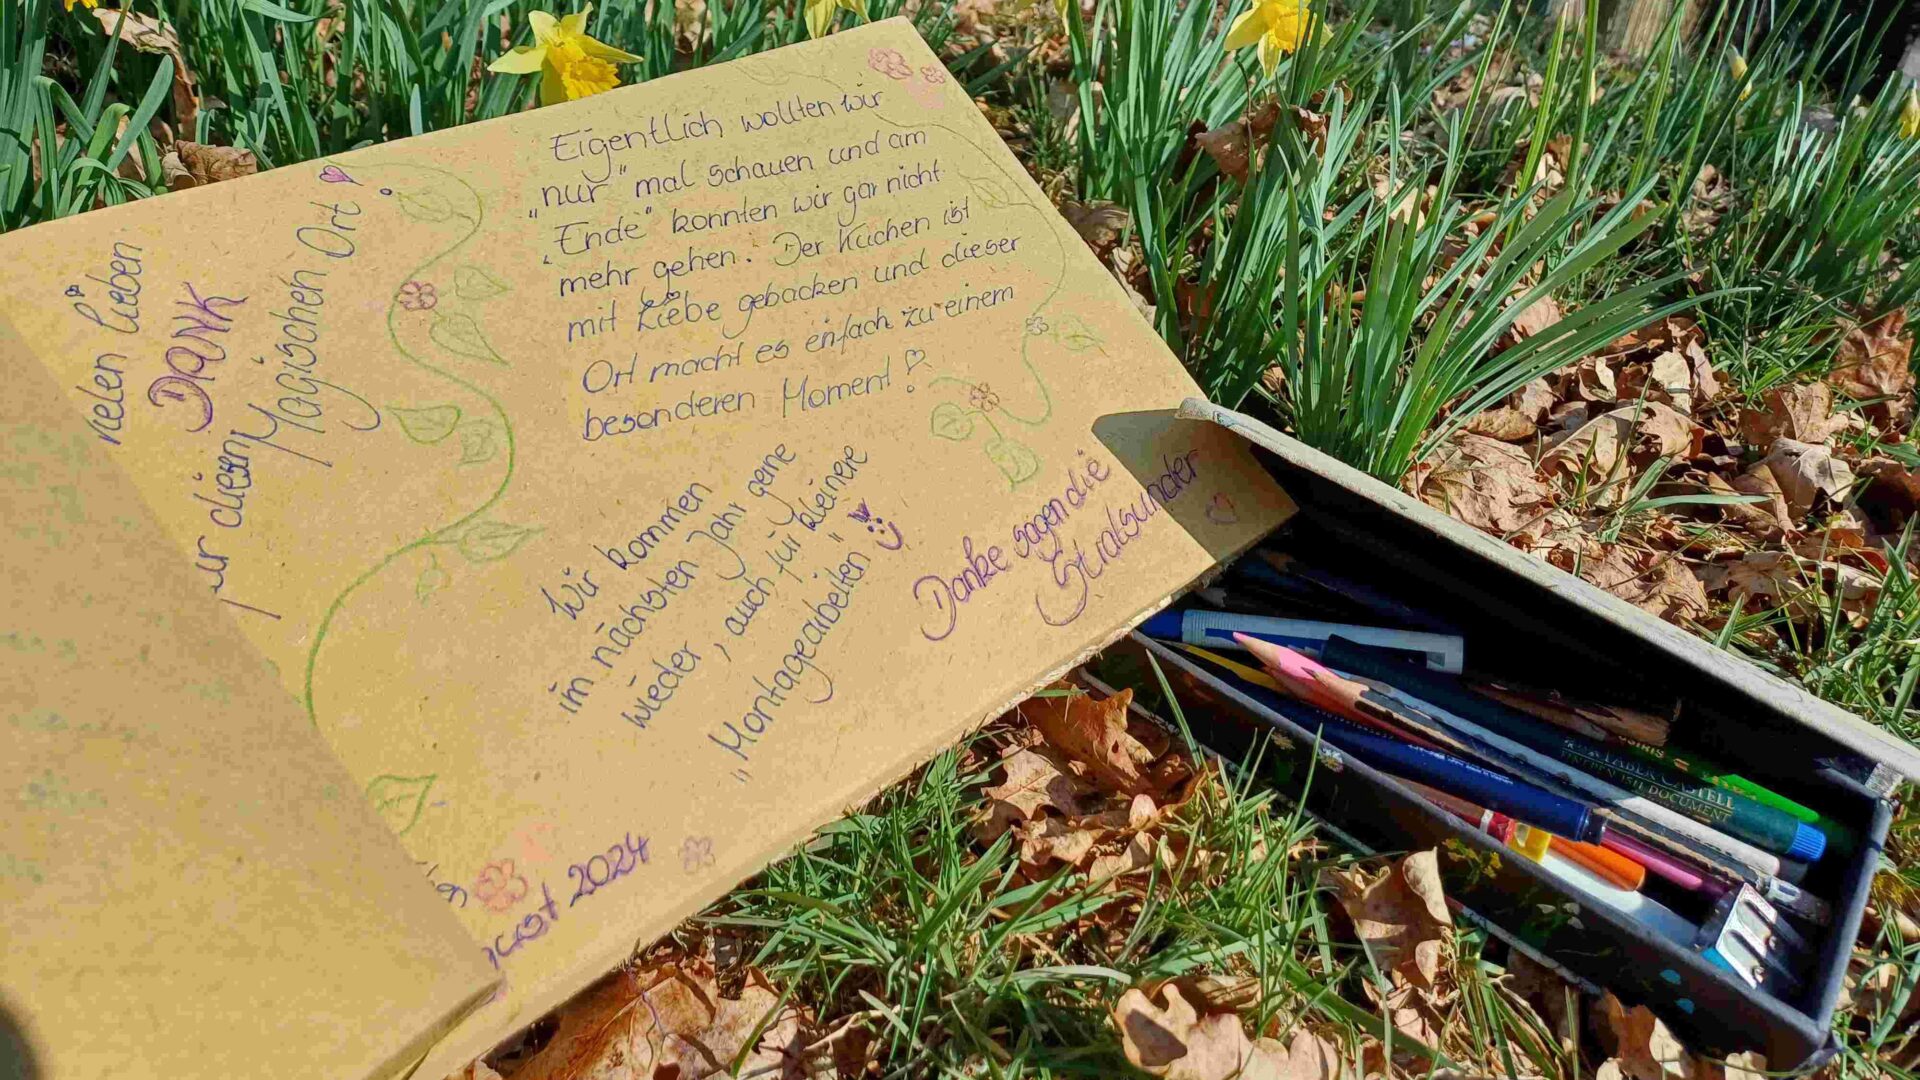 vielen lieben
DANK
ür diesen
Magischen Ort!
Eigentlich wollten wir
„nur" mal schauen und am
„Ende" konnten wir gar nicht
mehr gehen. Der Kuchen ist
mit Liebe gebacken und dieser
Ort macht es einfach zu einem
besonderen Moment!
Wir kommen
im nächsten Jahr gerne
wieder, auch für kleinere
„Montagearbeiten"
Danke sagen die
Stralsunder
2024
FABER CASTELL
DOCUMENT